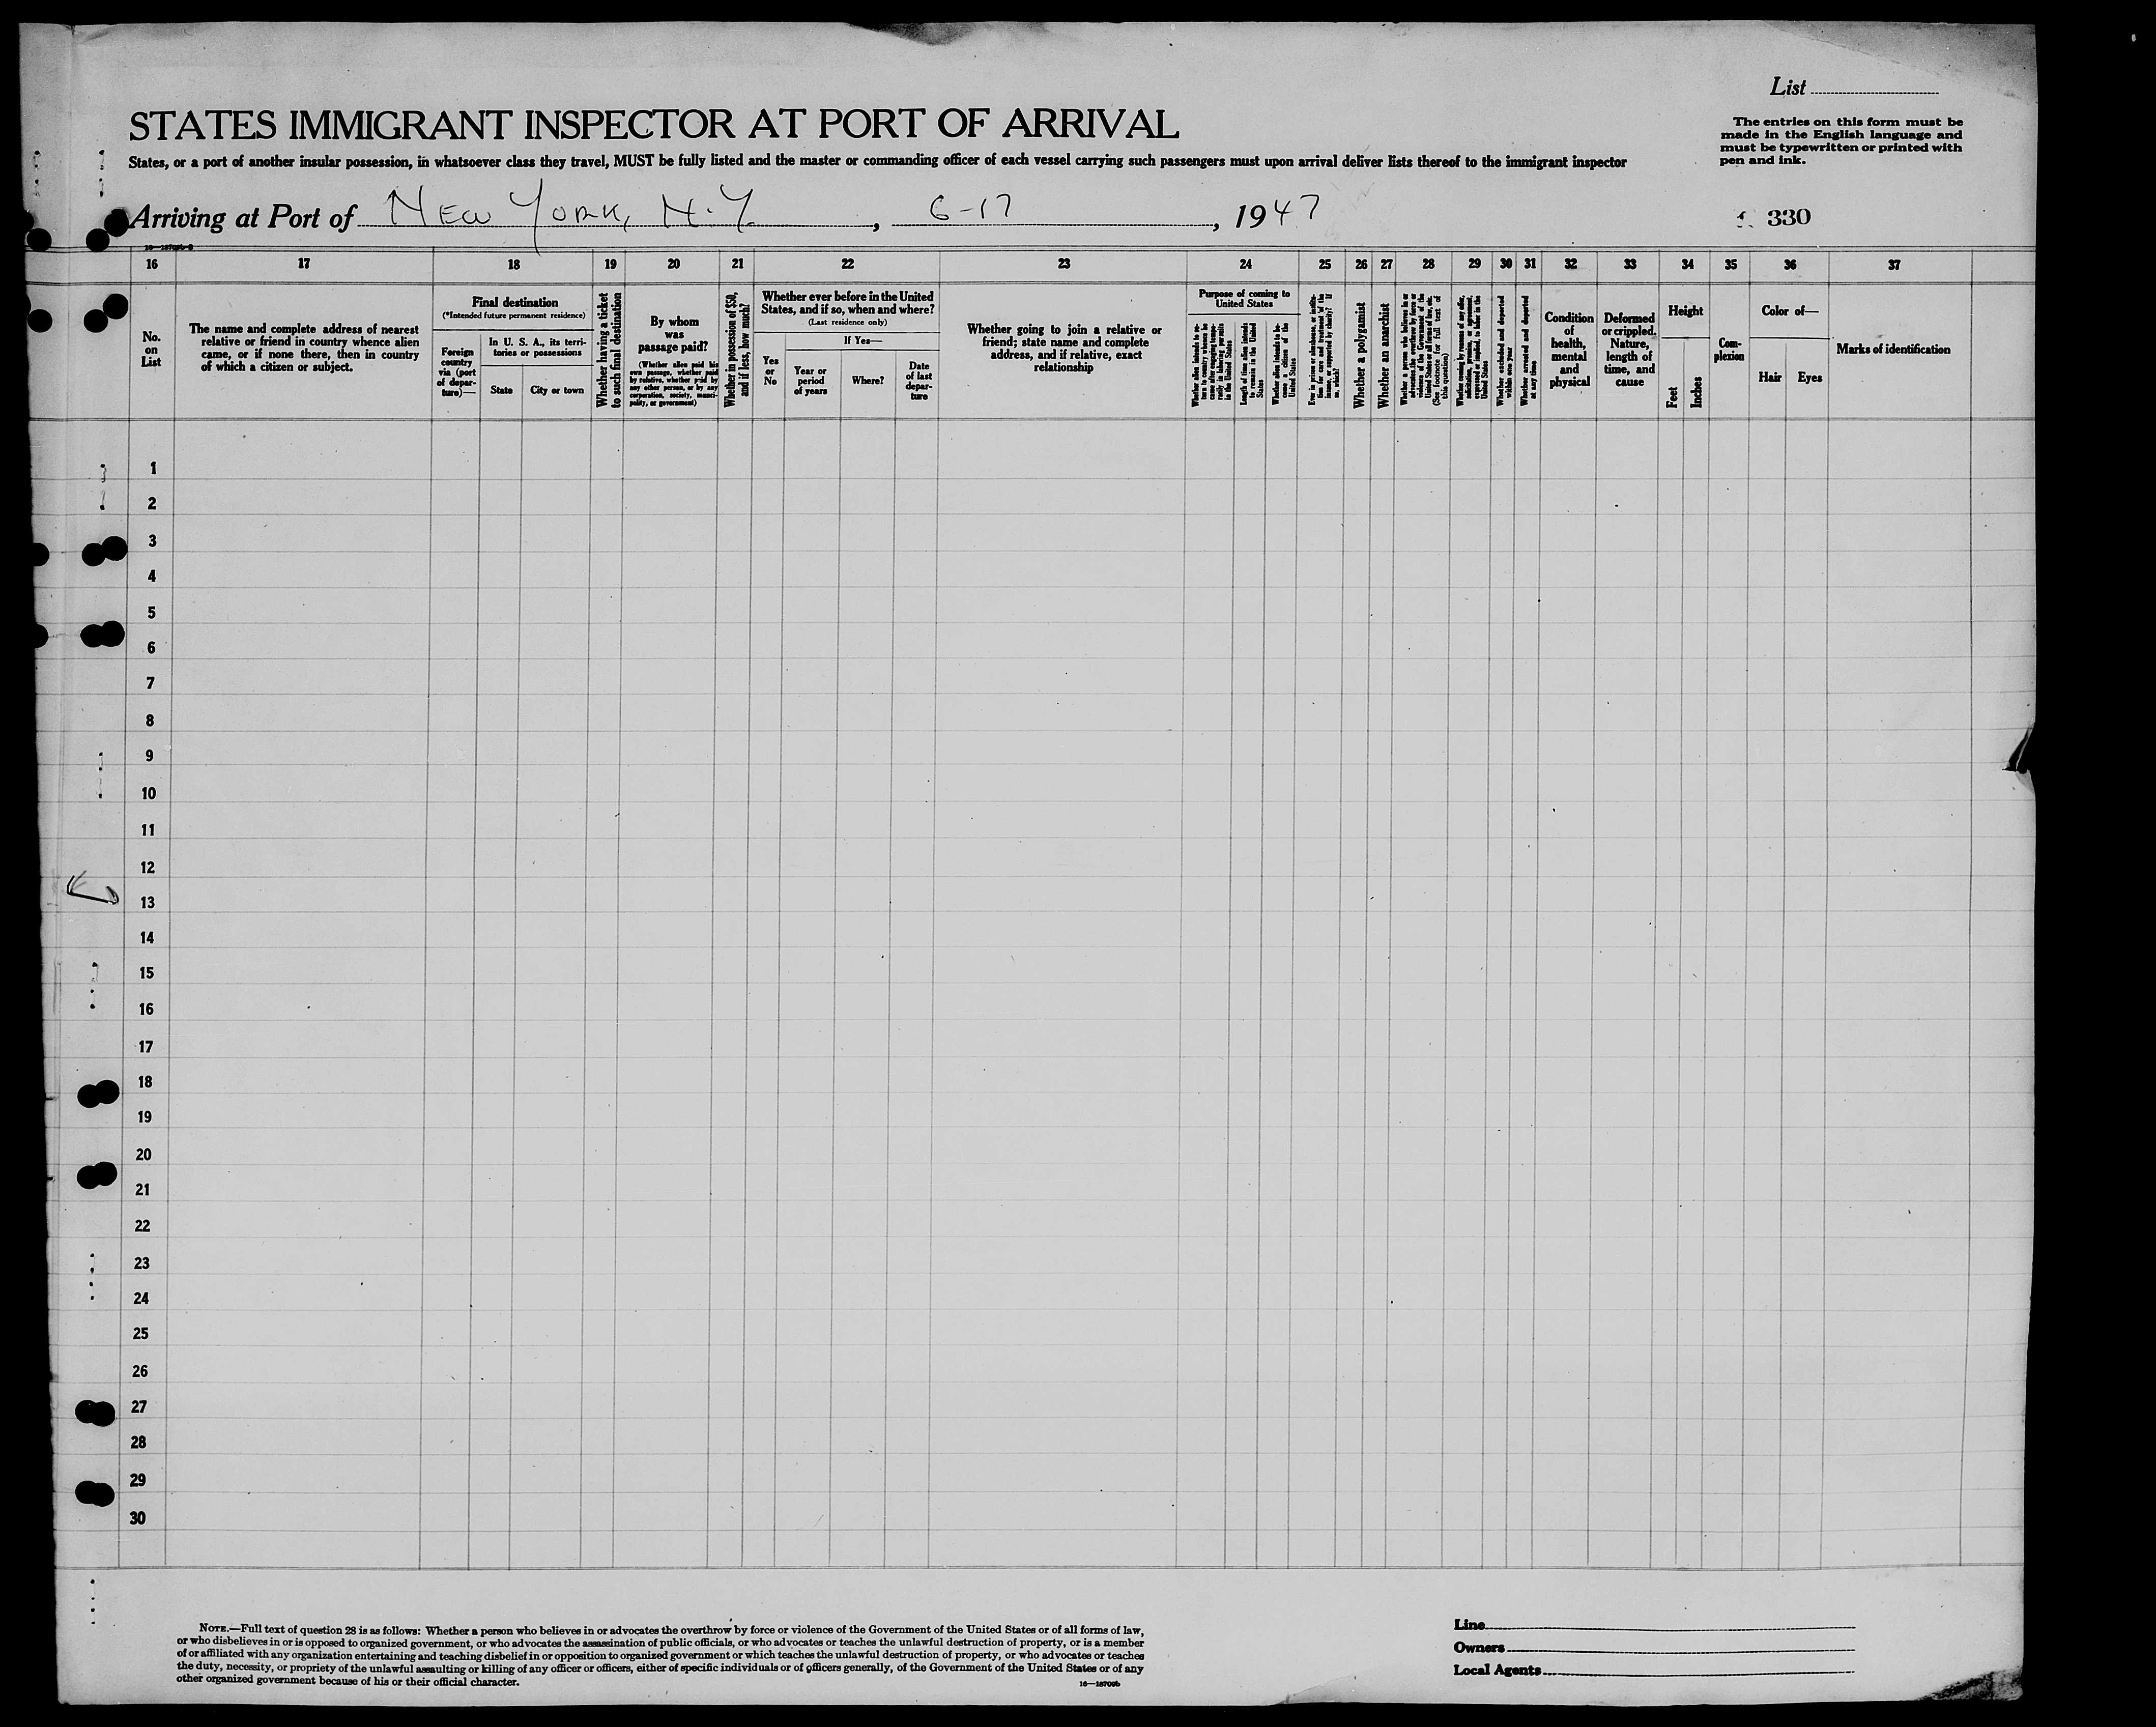 List
STATES IMMIGRANT INSPECTOR AT PORT OF ARRIVAL
The entries on this form must be
made in the English language and
must be typewritten or printed with
pen and ink.
States, or a port of another insular possession, in whatsoever class they travel, MUST be fully listed and the master or commanding officer of each vessel carrying such passengers must upon arrival deliver lists thereof to the immigrant inspector
Arriving at Port of New York, N.Y., 6-17, 1947
330
16 17 18 19 20 21 22 23 24 25 26 27 28 29 30 31 32 33 34 35 36 37
No.
on
List
The name and complete address of nearest
relative or friend in country whence alien
came, or if none there, then in country
of which a citizen or subject.
Final destination
(*Intended future permanent residence)
Foreign
country
via (port
of depar-
ture)—
In U. S. A., its terri-
tories or possessions
State
City or town
Whether having a ticket
to such final destination
By whom
was
passage paid?
(Whether alien paid his
own passage, whether paid
by relative, whether paid by
any other person, or by any
corporation, society, munici-
pality, or government)
Whether in possession of $50,
and if less, how much?
Whether ever before in the United
States, and if so, when and where?
(Last residence only)
Yes
or
No
If Yes—
Year or
period
of years
Where?
Date
of last
depar-
ture
Whether going to join a relative or
friend; state name and complete
address, and if relative, exact
relationship
Purpose of coming to
United States
Whether alien intends to re-
turn to country whence he
came after engaging tempo-
rarily in laboring pursuits
in the United States
Length of time alien intends
to remain in the United
States
Whether alien intends to be-
come a citizen of the
United States
Ever in prison or almshouse, or institu-
tion for care and treatment of the
insane, or supported by charity? If
so, which?
Whether a polygamist
Whether an anarchist
Whether a person who believes in or
advocates the overthrow by force or
violence of the Government of the
United States or all forms of law, etc.
(See footnote for full text of
this question)
Whether coming by reason of any offer,
solicitation, promise, or agreement,
expressed or implied, to labor in the
United States
Whether excluded and deported
within one year
Whether arrested and deported
at any time
Condition
of
health,
mental
and
physical
Deformed
or crippled.
Nature,
length of
time, and
cause
Height
Feet
Inches
Com-
plexion
Color of—
Hair
Eyes
Marks of identification
1
2
3
4
5
6
7
8
9
10
11
12
13
14
15
16
17
18
19
20
21
22
23
24
25
26
27
28
29
30
NOTE.—Full text of question 28 is as follows: Whether a person who believes in or advocates the overthrow by force or violence of the Government of the United States or of all forms of law,
or who disbelieves in or is opposed to organized government, or who advocates the assassination of public officials, or who advocates or teaches the unlawful destruction of property, or is a member
of or affiliated with any organization entertaining and teaching disbelief in or opposition to organized government or which teaches the unlawful destruction of property, or who advocates or teaches
the duty, necessity, or propriety of the unlawful assaulting or killing of any officer or officers, either of specific individuals or of officers generally, of the Government of the United States or of any
other organized government because of his or their official character.
Line
Owners
Local Agents